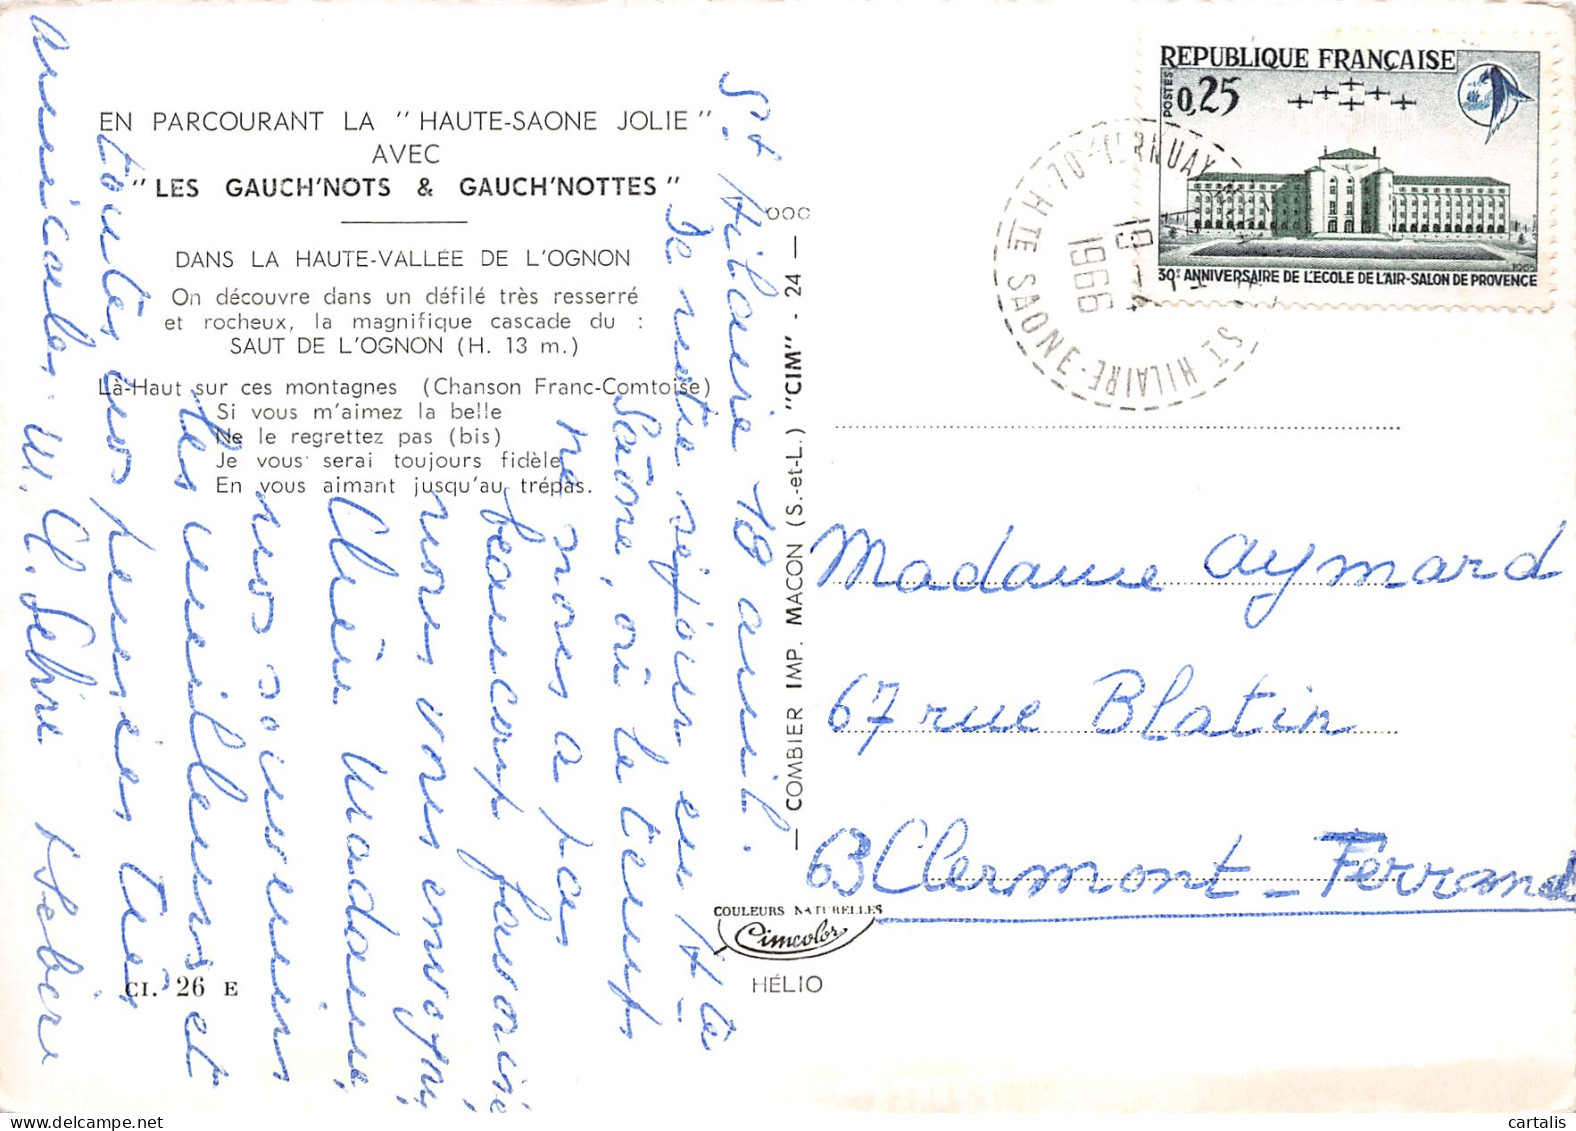 EN PARCOURANT LA " HAUTE-SAONE JOLIE "
AVEC
" LES GAUCH'NOTS & GAUCH'NOTTES "
DANS LA HAUTE-VALLÉE DE L'OGNON
On découvre dans un défilé très resserré
et rocheux, la magnifique cascade du :
SAUT DE L'OGNON (H. 13 m.)
Là-Haut sur ces montagnes (Chanson Franc-Comtoise)
Si vous m'aimez la belle
Ne le regrettez pas (bis)
Je vous serai toujours fidèle
En vous aimant jusqu'au trépas.
St Hilaire 18 avril.
De notre séjour en Hte
Saône, où le temps
ne nous a pas
beaucoup favorisé
nous vous envoyons,
Chère Madame,
nos souvenirs
les meilleurs et
toutes nos pensées très
amicales. M.
CI. 26 E
— COMBIER IMP. MACON (S.-et-L.) "CIM" - 24 —
COULEURS NATURELLES
Cimcolor
HÉLIO
REPUBLIQUE FRANÇAISE
POSTES
0,25
1965
30e ANNIVERSAIRE DE L'ECOLE DE L'AIR-SALON DE PROVENCE
ST HILAIRE-3 NOAS HTE SAONE
19 -4
1966
Madame Aymard
67 rue Blatin
63 Clermont-Ferrand
cartalis